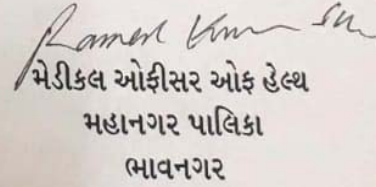 મેડીકલ ઓફીસર ઓફ હેલ્થ
મહાનગર પાલિકા
ભાવનગર